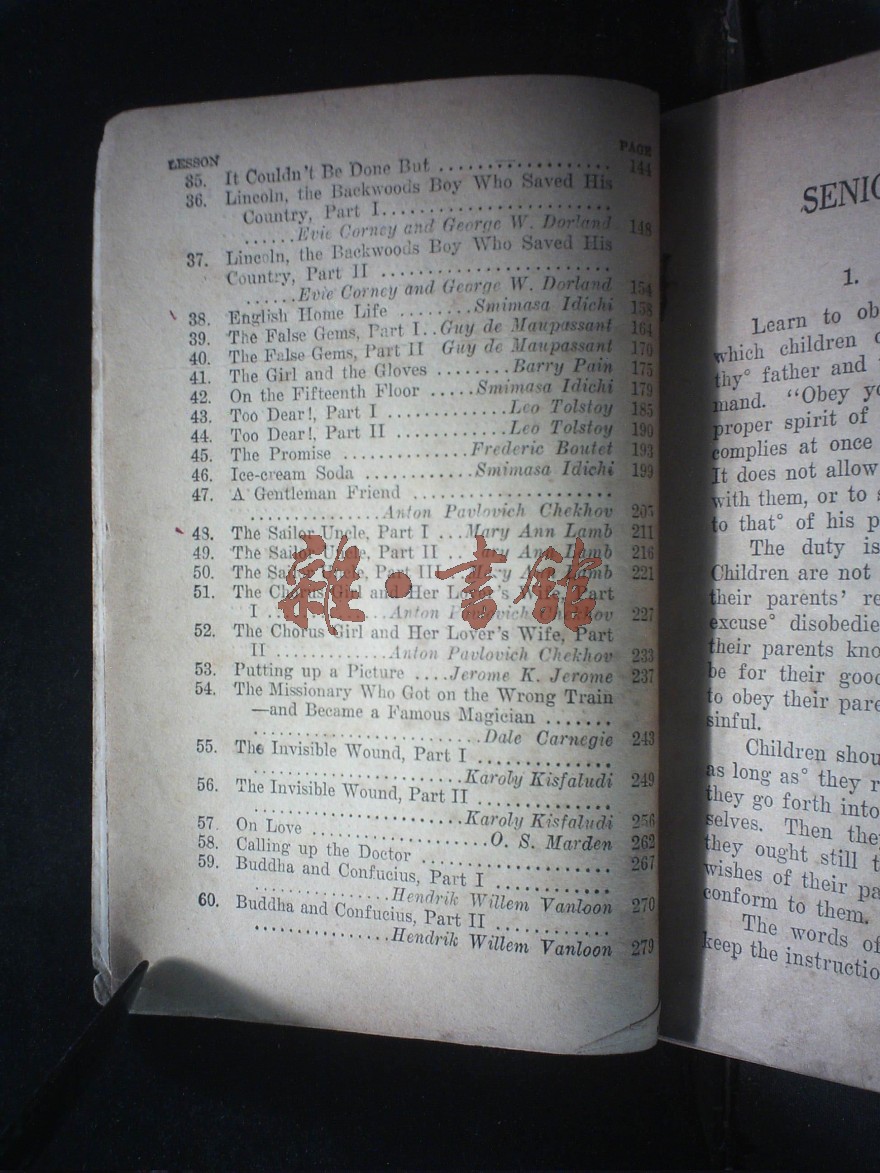 LESSON PAGE
35. It Couldn't Be Done But .................. 144
36. Lincoln, the Backwoods Boy Who Saved His
Country, Part I.........................
......Evie Corney and George W. Dorland 148
37. Lincoln, the Backwoods Boy Who Saved His
Country, Part II .........................
......Evie Corney and George W. Dorland 154
38. English Home Life ........Smimasa Idichi 158
39. The False Gems, Part I..Guy de Maupassant 164
40. The False Gems, Part II Guy de Maupassant 170
41. The Girl and the Gloves ........Barry Pain 175
42. On the Fifteenth Floor .....Smimasa Idichi 179
43. Too Dear!, Part I .............Leo Tolstoy 185
44. Too Dear!, Part II ............Leo Tolstoy 190
45. The Promise ..............Frederic Boutet 193
46. Ice-cream Soda ............Smimasa Idichi 199
47. A Gentleman Friend ......................
...............Anton Pavlovich Chekhov 205
48. The Sailor Uncle, Part I ...Mary Ann Lamb 211
49. The Sailor Uncle, Part II ..Mary Ann Lamb 216
50. The Sailor Uncle, Part III..Mary Ann Lamb 221
51. The Chorus Girl and Her Lover's Wife, Part
I ..............Anton Pavlovich Chekhov 227
52. The Chorus Girl and Her Lover's Wife, Part
II .............Anton Pavlovich Chekhov 233
53. Putting up a Picture ....Jerome K. Jerome 237
54. The Missionary Who Got on the Wrong Train
—and Became a Famous Magician .......
..........................Dale Carnegie 243
55. The Invisible Wound, Part I ..............
........................Karoly Kisfaludi 249
56. The Invisible Wound, Part II .............
........................Karoly Kisfaludi 256
57. On Love ....................O. S. Marden 262
58. Calling up the Doctor .................... 267
59. Buddha and Confucius, Part I ............
...............Hendrik Willem Vanloon 270
60. Buddha and Confucius, Part II ............
...............Hendrik Willem Vanloon 279
雜·書館
SENIO
1.
Learn to ob
which children
thy° father and
mand. "Obey yo
proper spirit of
complies at once
It does not allow
with them, or to
to that° of his p
The duty is
Children are not
their parents' re
excuse° disobedie
their parents kno
be for their good
to obey their pare
sinful.
Children shou
as long as° they r
they go forth into
selves. Then they
they ought still t
wishes of their pa
conform to them.
The words of
keep the instructio